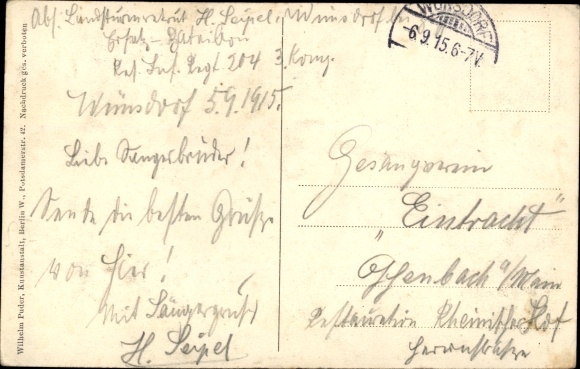 Abs. Landsturmrekrut H. Seipel, Wünsdorf bei
Ersatz-Bataillon
Res. Inf. Regt 204 3. Komp.
Wünsdorf 5.9.1915.
Liebe Sangesbrüder!
Sende die besten Grüße
von hier!
Mit Sängergruß
H. Seipel
WÜNSDORF
-6.9.15.6-7V.
Gesangverein
"Eintracht"
Offenbach a/Main
Restauration Rheinischer Hof
Herrnstraße
Wilhelm Puder, Kunstanstalt, Berlin W., Potsdamerstr. 42. Nachdruck ges. verboten